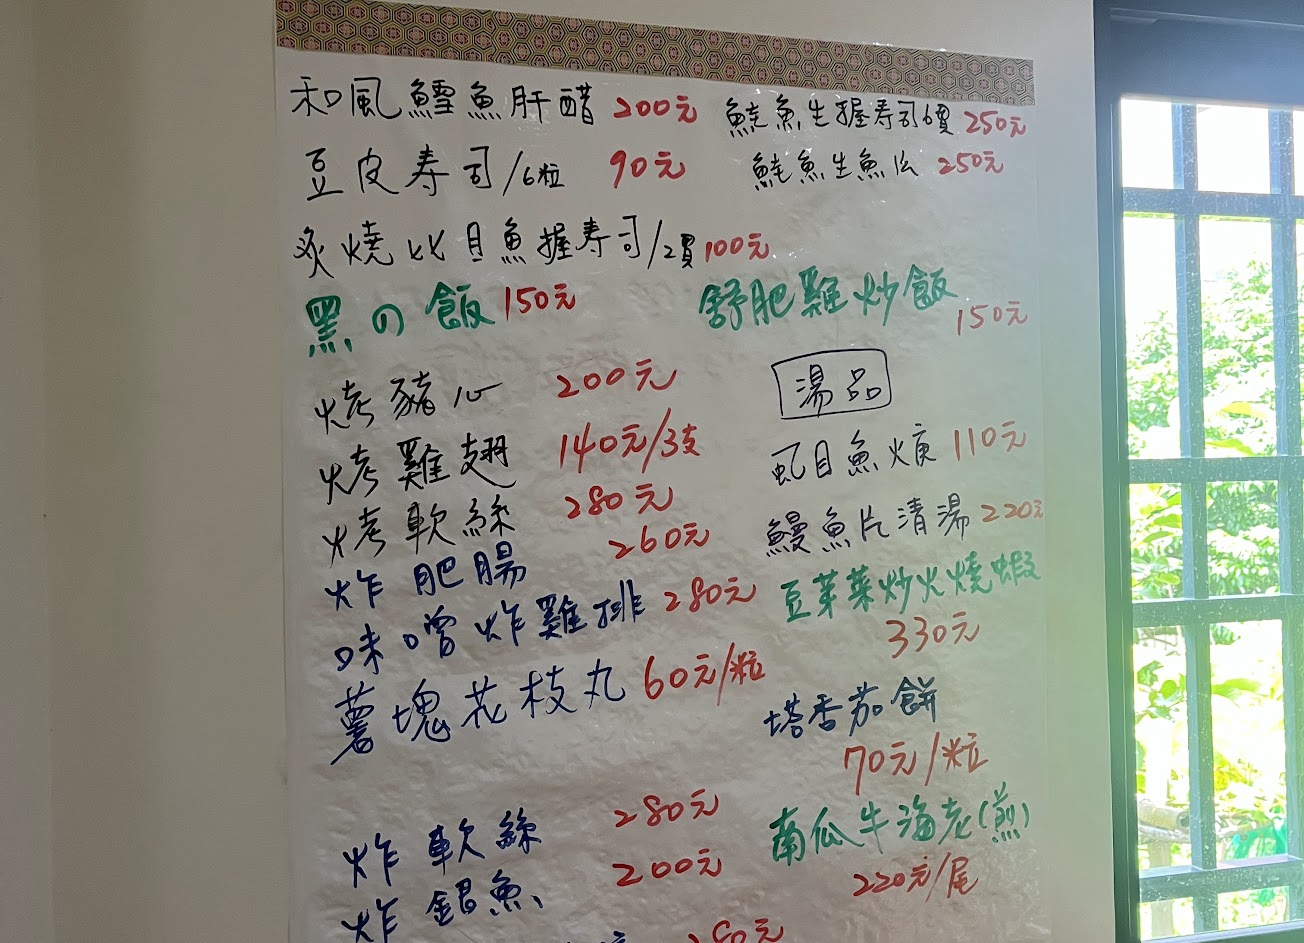 和風鱈魚肝醋 200元
鮭魚生握寿司6貫 250元
豆皮寿司/6粒 90元
鮭魚生魚片 250元
炙燒比目魚握寿司/2貫 100元
黑の飯 150元
舒肥雞炒飯
150元
烤豬心 200元
烤雞翅 140元/3支
烤軟絲 280元
炸肥腸 260元
味噌炸雞排 280元
薯塊花枝丸 60元/粒
炸軟絲 280元
炸魚 200元
280元
湯品
虱目魚 110元
鰻魚片清湯 220元
豆芽菜炒火燒蝦
330元
塔香茄餅
70元/粒
南瓜牛海老(煎)
220元/尾